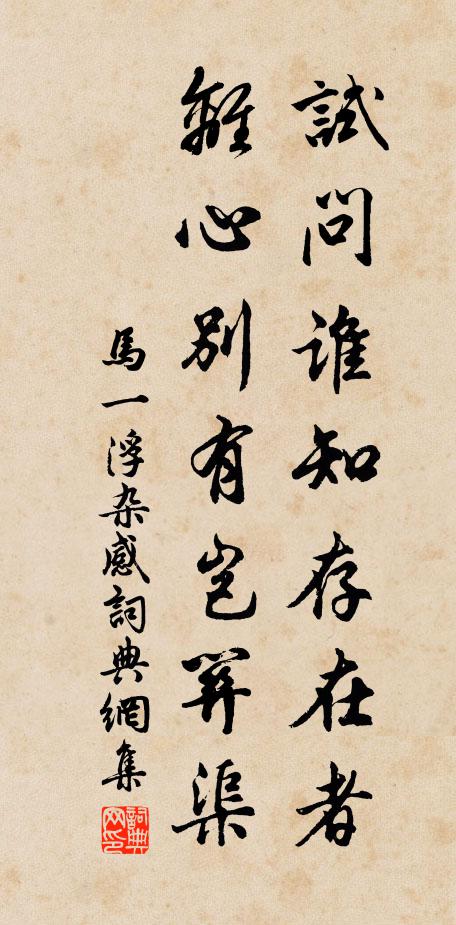 試問誰知存在者
離心別有豈筭渠
馬一浮杂感詞典網集
詞典
网印